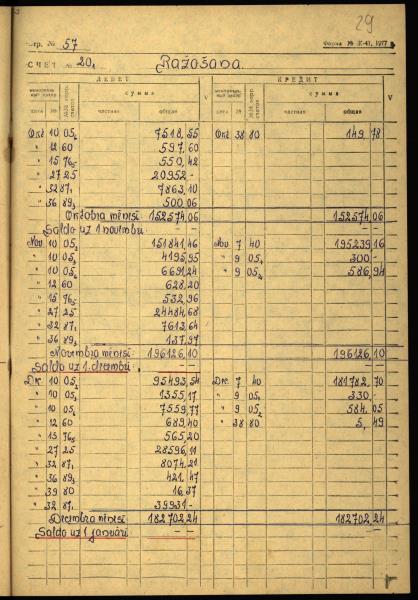 29
Стр. № 57
Форма № К-41, 1977
СЧЕТ № 20, Ražošana.
ДЕБЕТ КРЕДИТ
сумма V сумма V
дата № частная общая дата № частная общая
Okt 10 05₂ 7518,55 Okt 38 80 149,78
" 12 60 597,60
" 15 76₅ 550,42
" 27 25 20952-
" 32 87₁ 7863,10
" 36 89₃ 500,06
Oktobra mēnesī 152574,06 152574,06
Saldo uz 1 novembri — —
Nov. 10 05₂ 151841,46 Nov 7 40 195239,16
" 10 05₂ 4195,95 " 9 05₂ 300-
" 10 05₂ 6691,24 " 9 05₂ 586,94
" 12 60 628,20
" 15 76₅ 532,96
" 27 25 24484,68
" 32 87₁ 7613,64
" 36 89₃ 137,97
Novembra mēnesī 196126,10 196126,10
Saldo uz 1. decembri — —
Dec 10 05₂ 95493,54 Dec. 7 40 181782,70
" 10 05₂ 1355,17 " 9 05₂ 330-
" 10 05₂ 7559,77 " 9 05₂ 584,05
" 12 60 689,40 " 38 80 5,49
" 15 76₅ 565,20
" 27 25 28596,11
" 32 87₁ 8074,21
" 36 89₃ 421,47
" 39 80 16,37
" 32 87₁ 39931-
Decembra mēnesī 182702,24 182702,24
Saldo uz 1 janvāri — —